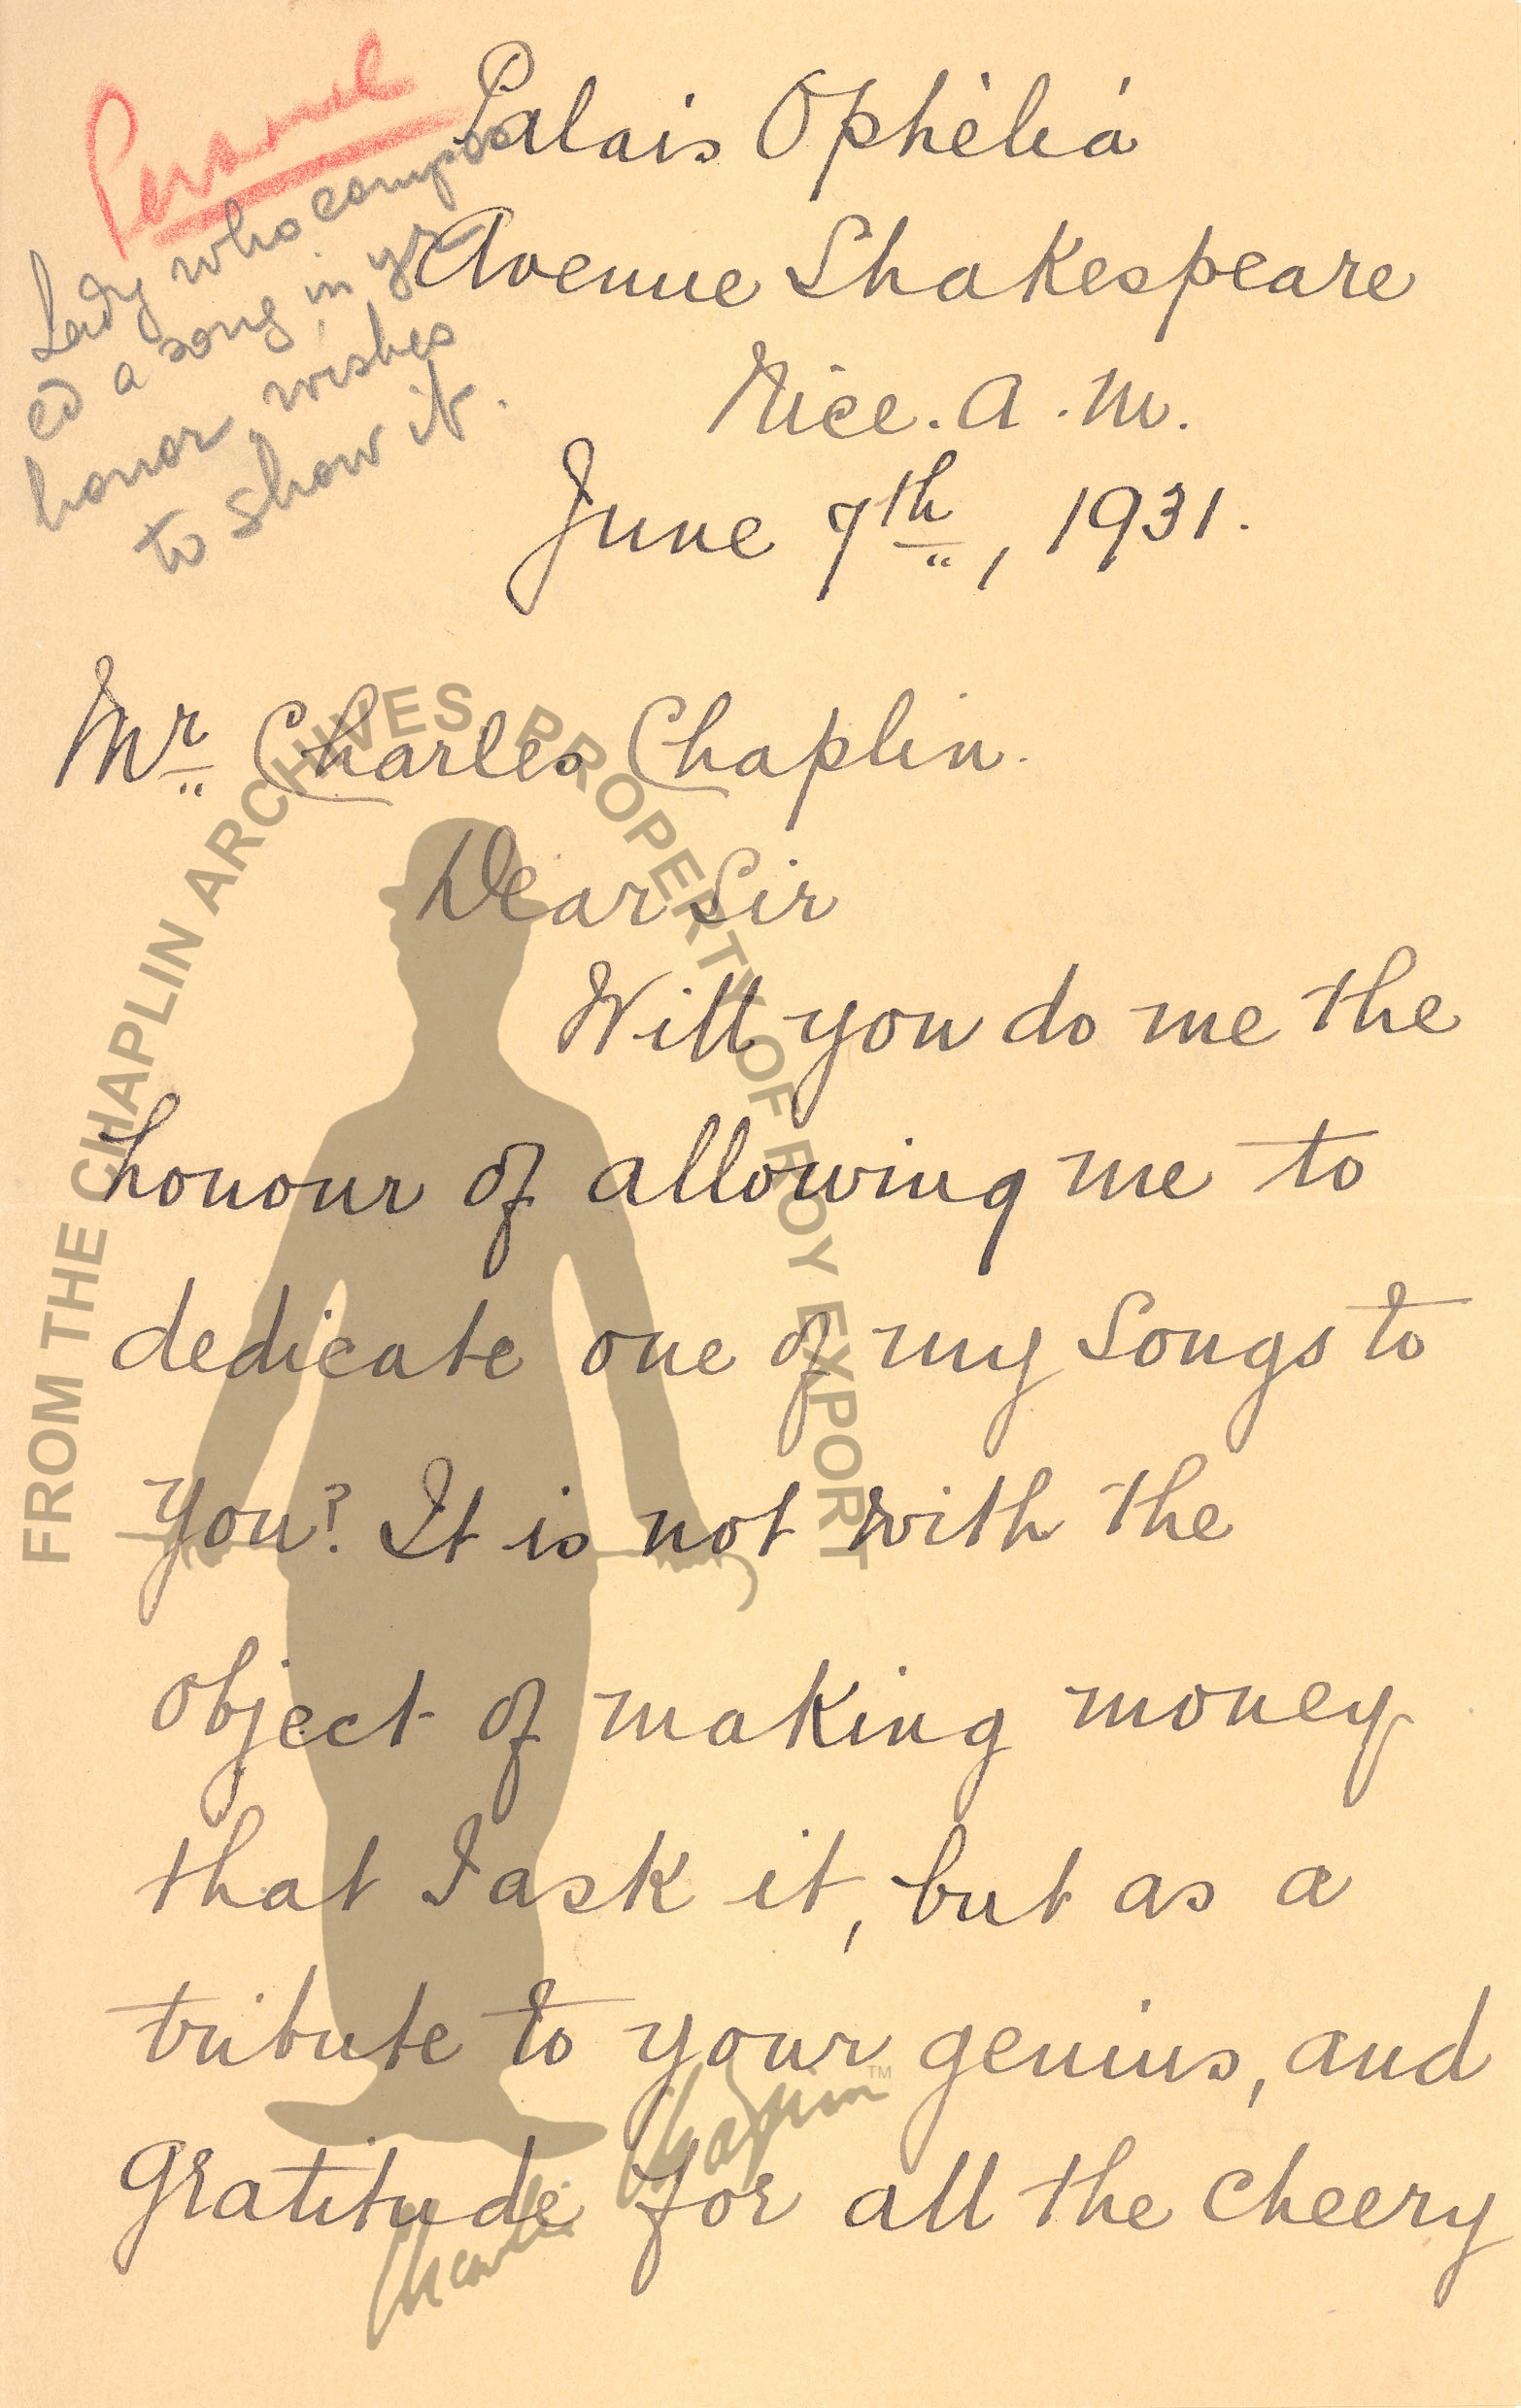 Personal
Lady who compos
ed a song in yr
honor wishes
to show it.
Palais Ophèlià
Avenue Shakespeare
Nice. A. M.
June 7th, 1931.
Mr Charles Chaplin.
Dear Sir
Will you do me the
honour of allowing me to
dedicate one of my Songs to
you? It is not with the
object of making money
that I ask it, but as a
tribute to your genius, and
gratitude for all the cheery
FROM THE CHAPLIN ARCHIVES. PROPERTY OF ROY EXPORT
Charlie Chaplin™